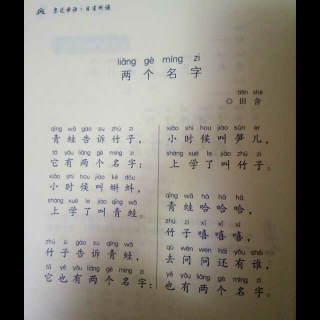 亲近母语·日有所诵
liǎng gè míng zi
两个名字
tián shè
◎田舍
qīng wā gào su zhú zi
青蛙告诉竹子，
tā yǒu liǎng gè míng zi
它有两个名字：
xiǎo shí hou jiào kē dǒu
小时候叫蝌蚪，
shàng xué le jiào qīng wā
上学了叫青蛙。
zhú zi gào su qīng wā
竹子告诉青蛙，
tā yě yǒu liǎng gè míng zi
它也有两个名字：
xiǎo shí hou jiào sǔn er
小时候叫笋儿，
shàng xué le jiào zhú zi
上学了叫竹子。
qīng wā hā hā hā
青蛙哈哈哈，
zhú zi xī xī xī
竹子嘻嘻嘻，
qù wèn wen hái yǒu shéi
去问问还有谁，
yě yǒu liǎng gè míng zi
也有两个名字。